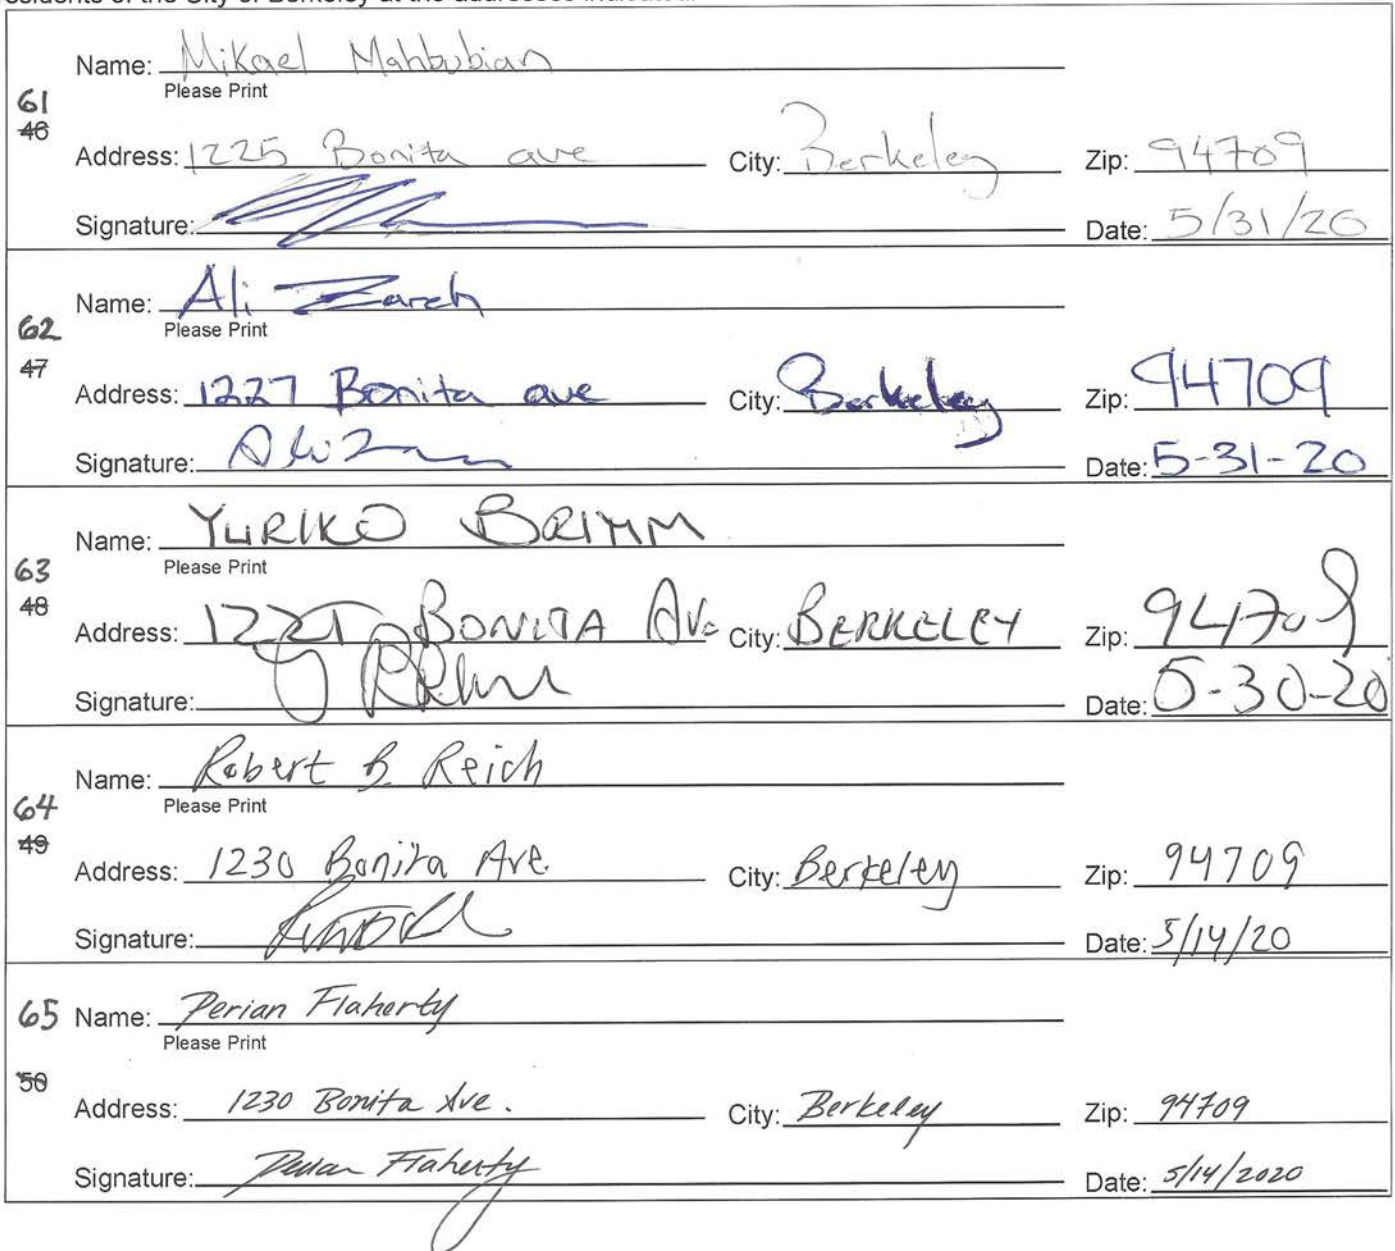 residents of the City of Berkeley at the addresses indicated.
Name: Mikael Mahbubian
Please Print
61
46
Address: 1225 Bonita ave City: Berkeley Zip: 94709
Signature: Date: 5/31/20
Name: Ali Zarch
Please Print
62
47
Address: 1227 Bonita ave City: Berkeley Zip: 94709
Signature: Date: 5-31-20
Name: YURIKO BRIMM
Please Print
63
48
Address: BONITA Ave City: BERKELEY Zip: 94709
Signature: Date: 5-30-20
Name: Robert B. Reich
Please Print
64
49
Address: 1230 Bonita Ave. City: Berkeley Zip: 94709
Signature: Date: 5/14/20
65 Name: Perian Flaherty
Please Print
50
Address: 1230 Bonita Ave. City: Berkeley Zip: 94709
Signature: Perian Flaherty Date: 5/14/2020